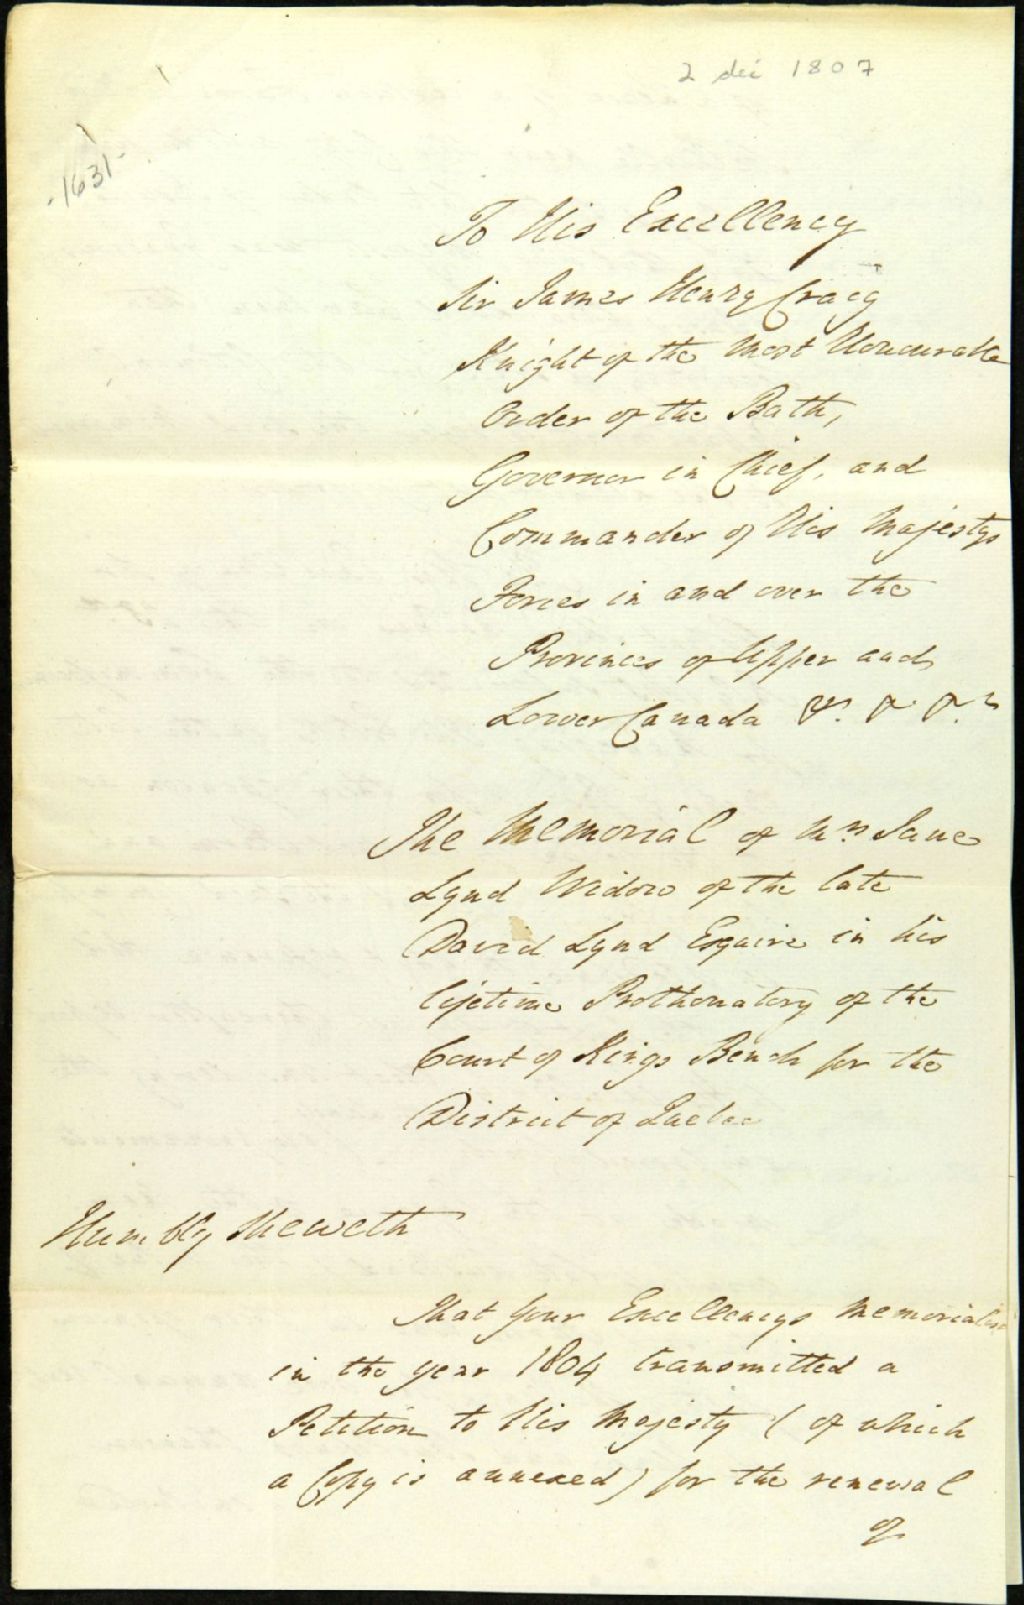 2 dec 1807
-1631-
To His Excellency
Sir James Henry Craig
Knight of the most Honourable
Order of the Bath,
Governor in Chief, and
Commander of His Majestys
Forces in and over the
Provinces of Upper and
Lower Canada &c. &c &c.
The Memorial of Mrs. Jane
Lynd Widow of the late
David Lynd Esquire in his
lifetime Prothonotary of the
Court of Kings Bench for the
District of Quebec
Humbly Sheweth
That Your Excellencys Memorialist
in the year 1804 transmitted a
Petition to His Majesty ( of which
a Copy is annexed ) for the renewal
of